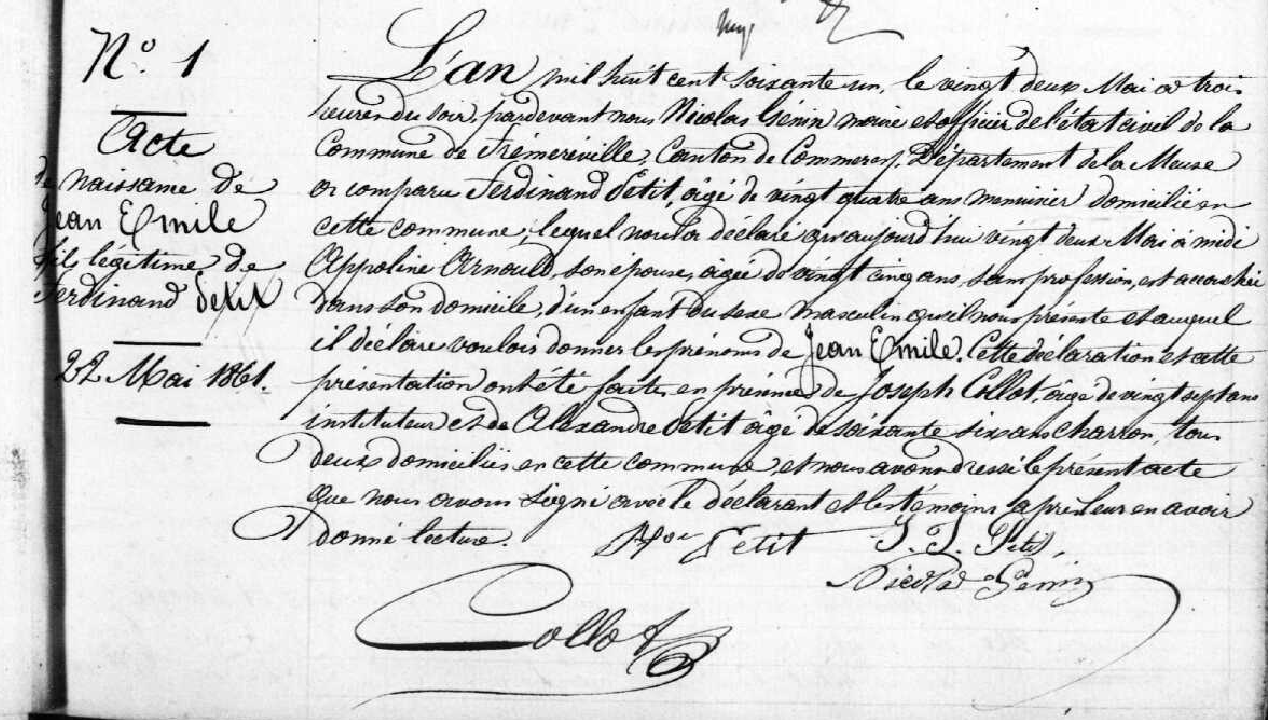 N.° 1
Acte
de naissance de
Jean Emile
fils légitime de
Ferdinand Petit
22 Mai 1861.
L'an mil huit cent soixante un, le vingt deux Mai à trois
heures du soir, pardevant nous Nicolas Génin maire et officier de l'état civil de la
Commune de Frémeréville, Canton de Commercy, Département de la Meuse
a comparu Ferdinand Petit, âgé de vingt quatre ans menuisier domicilié en
cette commune, lequel nous a déclaré qu'aujourd'hui vingt deux Mai à midi
Appoline Arnould, son épouse, âgée de vingt cinq ans, sans profession, est accouchée
dans son domicile, d'un enfant du sexe masculin qu'il nous présente et auquel
il déclare vouloir donner les prénoms de Jean Emile. Cette déclaration et cette
présentation ont été faites en présence de Joseph Collot, âgé de vingt sept ans
instituteur et de Alexandre Petit âgé de soixante six ans charron, tous
deux domiciliés en cette commune, et nous avons dressé le présent acte
que nous avons signé avec le déclarant et les témoins après leur en avoir
donné lecture.
Petit
Petit
Nicolas Genin
Collot